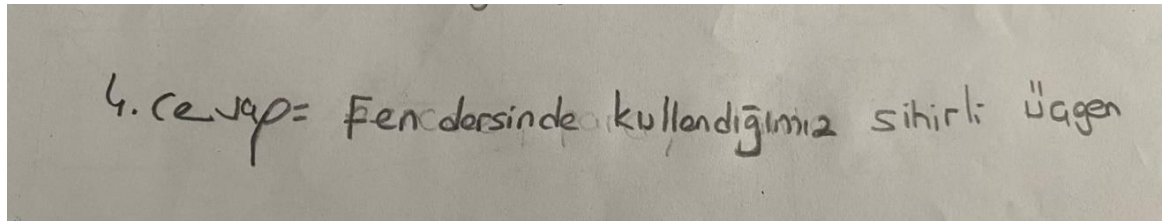 4. cevap= Fen dersinde kullandığımız sihirli üçgen